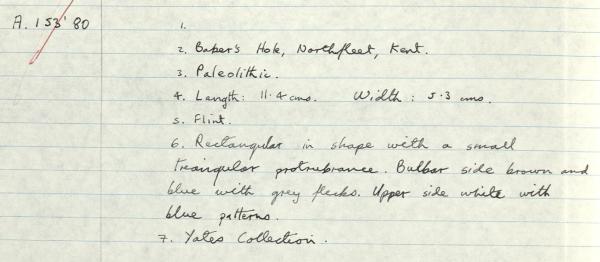 A. 153' 80
1.
2. Baker's Hole, Northfleet, Kent.
3. Paleolithic.
4. Length: 11.4 cms. Width: 5.3 cms.
5. Flint.
6. Rectangular in shape with a small
triangular protrubrance. Bulbar side brown and
blue with grey flecks. Upper side white with
blue patterns.
7. Yates Collection.